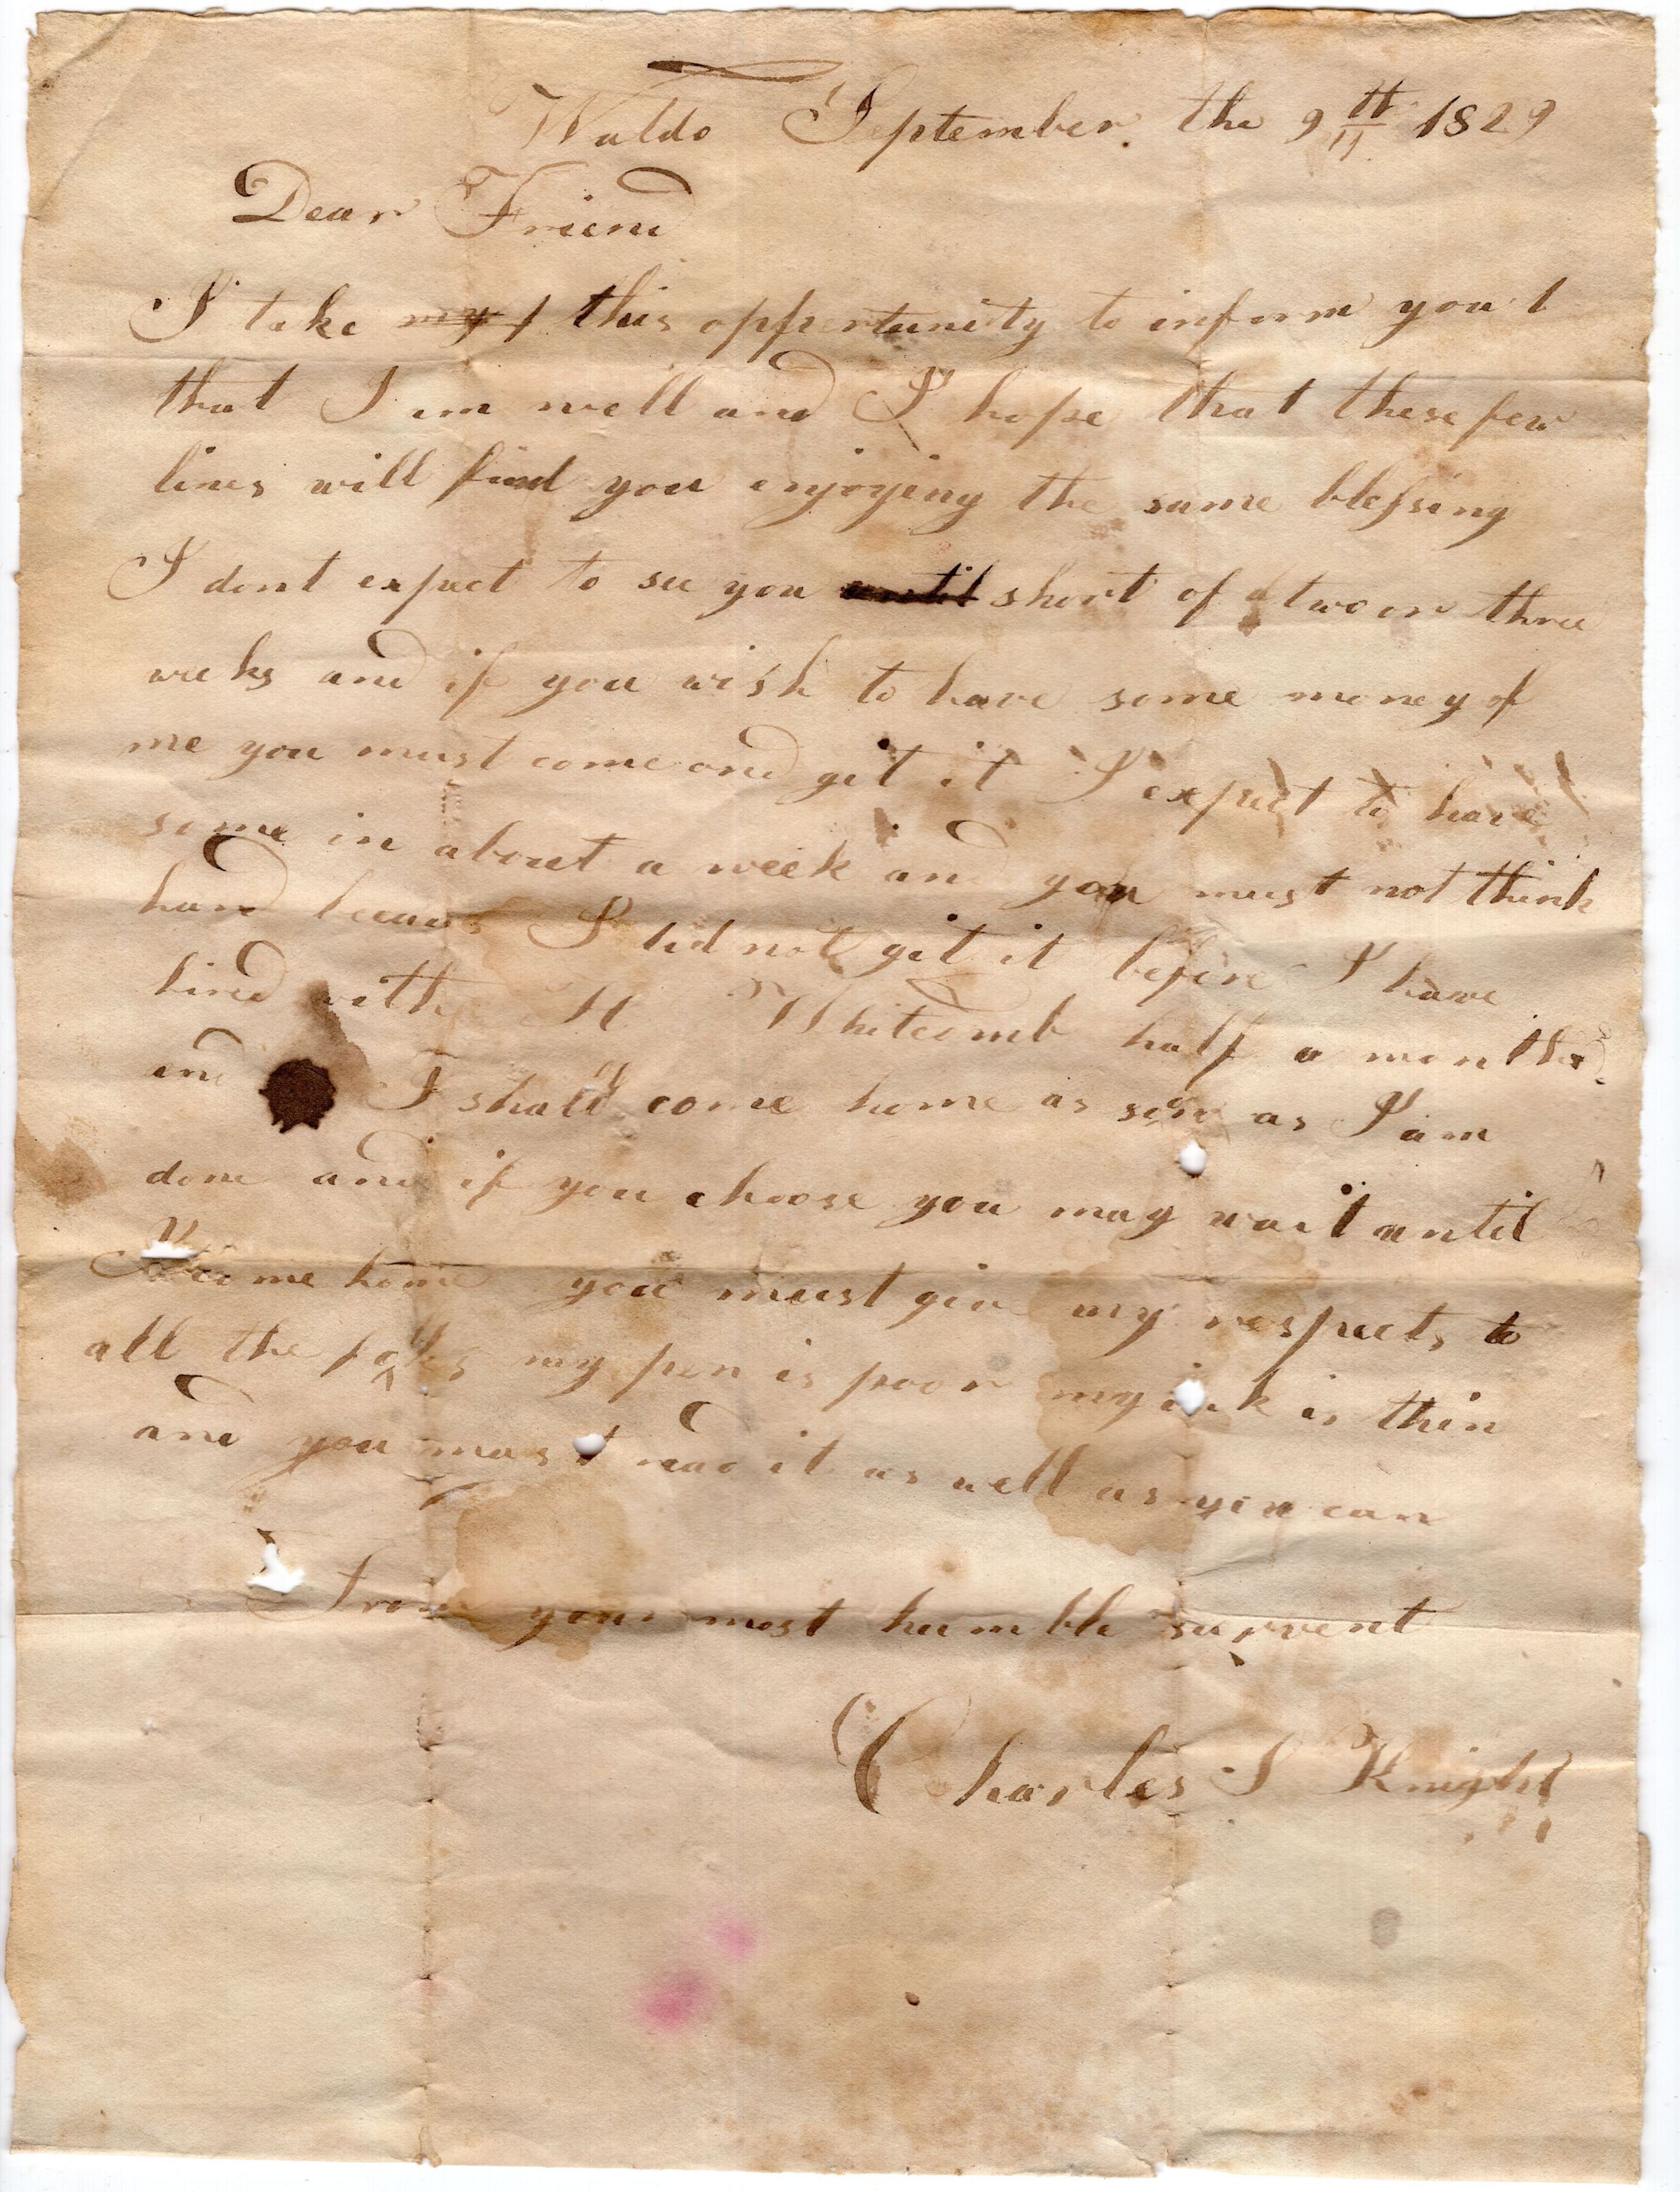 Waldo September the 9th 1829
Dear Friend
I take my f this oppertunity to inform you t
that I am well and I hope that these few
lines will find you enjoying the same blessing
I dont expect to see you until short of two or three
weeks and if you wish to have some money of
me you must come and git it I expect to have
some in about a week and you must not think
hard becaus I did not git it before I have
hired with Whitcomb half a month
and I shall come home as soon as I am
done and if you choose you may wait until
I come home you must give my respects to
all the folks my pen is poor my ink is thin
and you must read it as well as you can
From your most humble survent
Charles S Knight